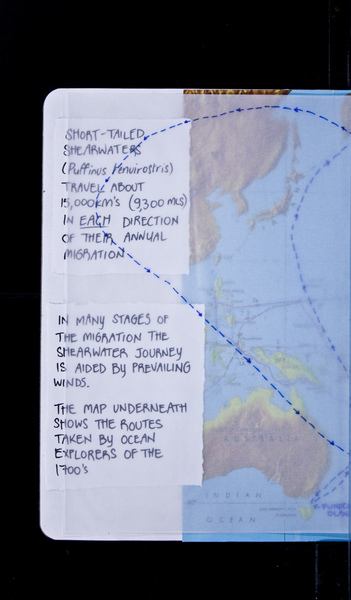 SHORT-TAILED
SHEARWATERS
(Puffinus Tenuirostris)
TRAVEL ABOUT
15,000KM'S (9,300 MLS)
IN EACH DIRECTION
OF THEIR ANNUAL
MIGRATION
IN MANY STAGES OF
THE MIGRATION THE
SHEARWATER JOURNEY
IS AIDED BY PREVAILING
WINDS.
THE MAP UNDERNEATH
SHOWS THE ROUTES
TAKEN BY OCEAN
EXPLORERS OF THE
1700's
AUSTRALIA
INDIAN
OCEAN